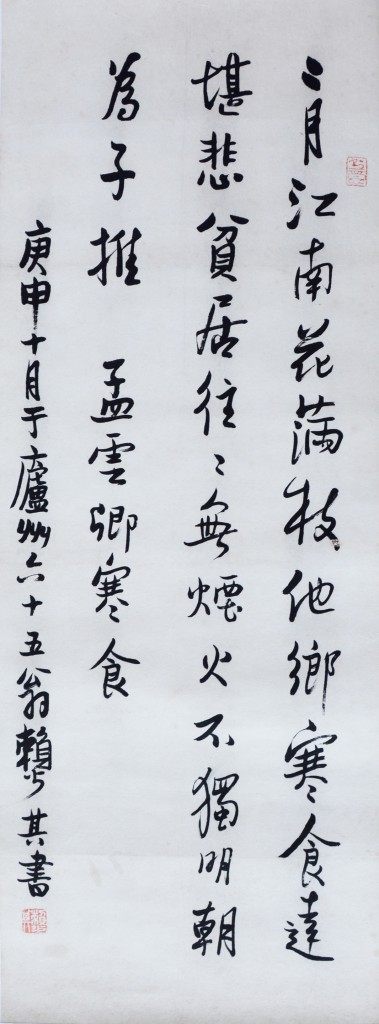 二月江南花滿枝他鄉寒食遠
堪悲貧居往〻無煙火不獨明朝
為子推 孟雲卿寒食
庚申十月于廬州六十五翁賴少其書